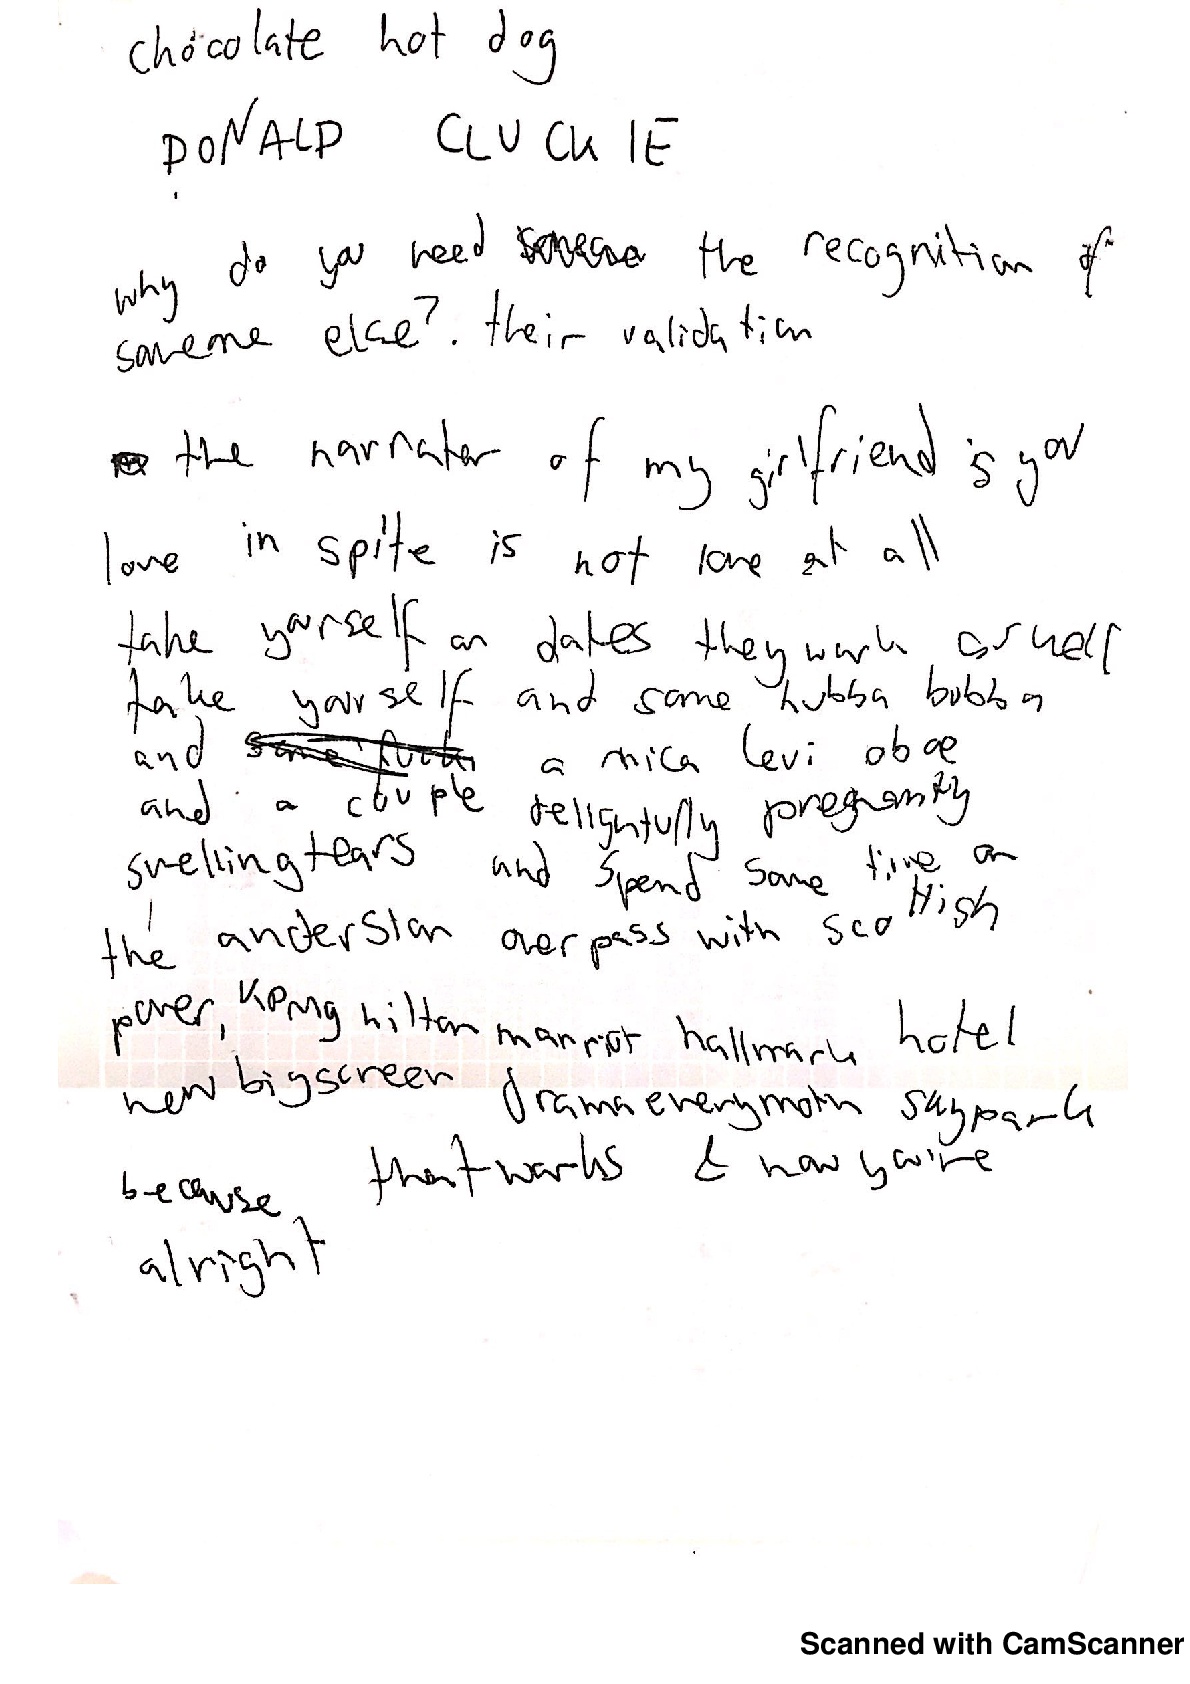 chocolate hot dog
DONALD CLUCKIE
why do you need the recognition of
someone else?. their validation
the narrater of my girlfriend is you
love in spite is not love at all
take yourself on dates they work as well
take yourself and some hubba bubba
and some a mica levi oboe
and a couple delightfully pregnantly
swelling tears and spend some time on
the anderston overpass with scottish
power, KPMG hilton marriot hallmark hotel
new bigscreen drama everymotn skypark
because that works & now you're
alright
Scanned with CamScanner